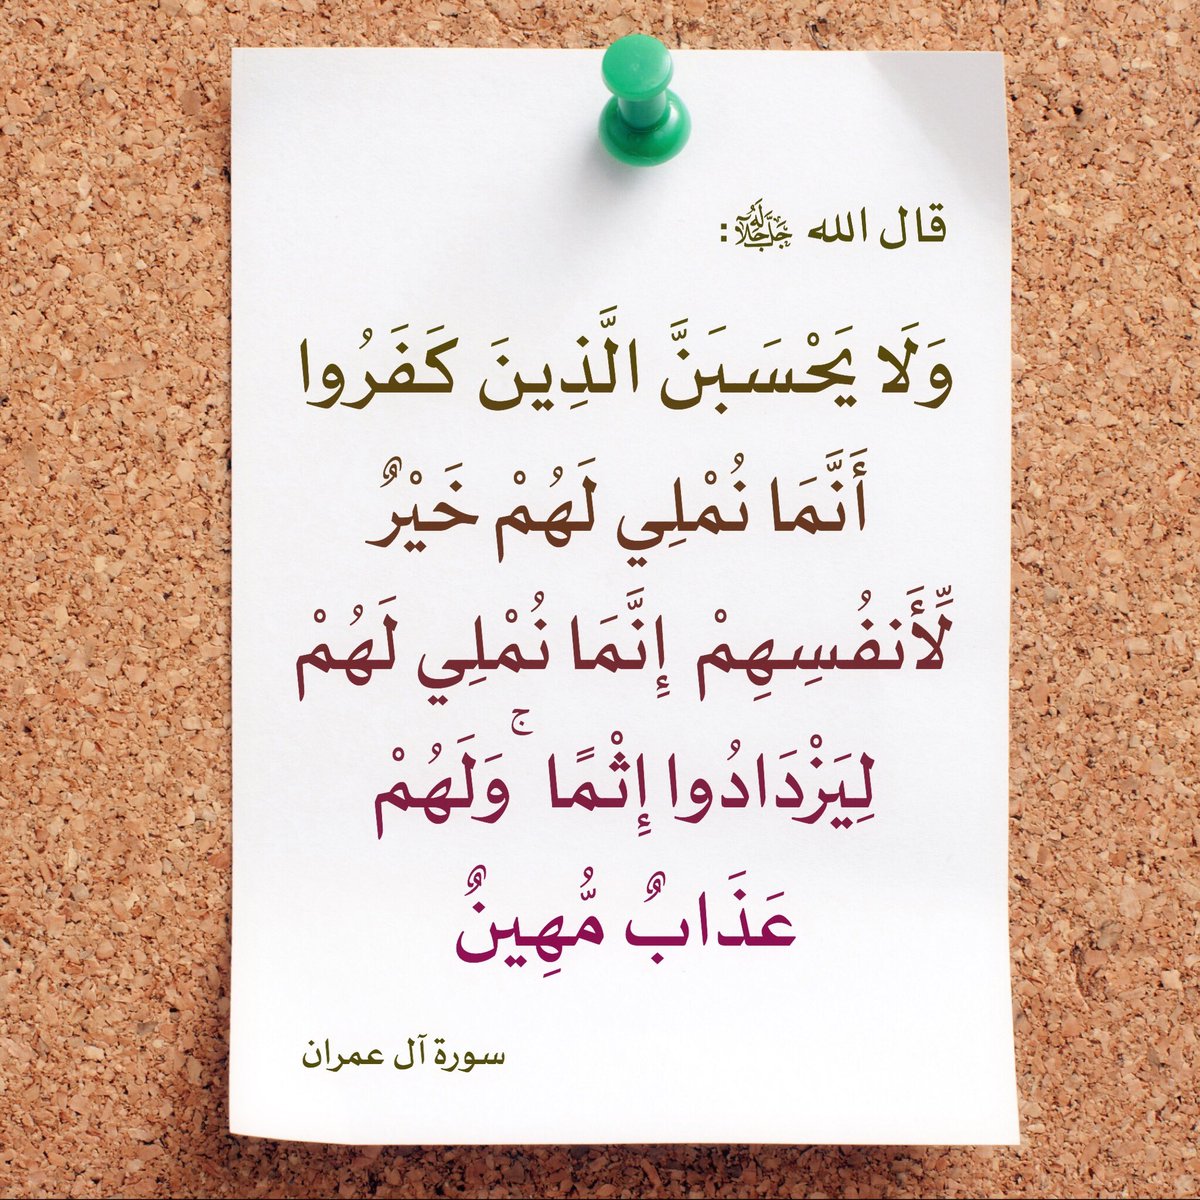 قال الله ﷻ:
وَلَا يَحْسَبَنَّ الَّذِينَ كَفَرُوا
أَنَّمَا نُمْلِي لَهُمْ خَيْرٌ
لِّأَنفُسِهِمْ إِنَّمَا نُمْلِي لَهُمْ
لِيَزْدَادُوا إِثْمًا ۚ وَلَهُمْ
عَذَابٌ مُّهِينٌ
سورة آل عمران